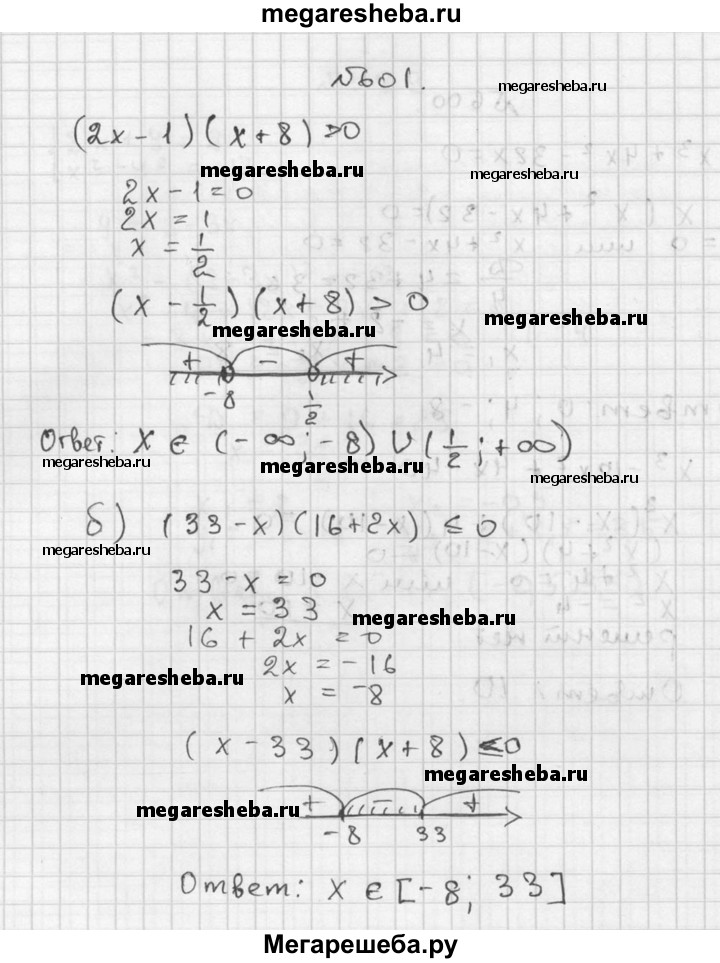 megaresheba.ru
№601.
megaresheba.ru
(2x-1)(x+8)>0
megaresheba.ru
megaresheba.ru
2x-1=0
2x = 1
x = 1/2
(x - 1/2)(x+8) > 0
megaresheba.ru
megaresheba.ru
+ - +
-8 1/2
Ответ: x ∈ (-∞; -8) ∪ (1/2; +∞)
megaresheba.ru
megaresheba.ru
megaresheba.ru
б) (33-x)(16+2x) ≤ 0
megaresheba.ru
33-x = 0
x = 33
megaresheba.ru
16 + 2x = 0
2x = -16
megaresheba.ru
x = -8
(x-33)(x+8) ≤0
megaresheba.ru
+ - +
megaresheba.ru
-8 33
Ответ: x ∈ [-8; 33]
Мегарешеба.ру